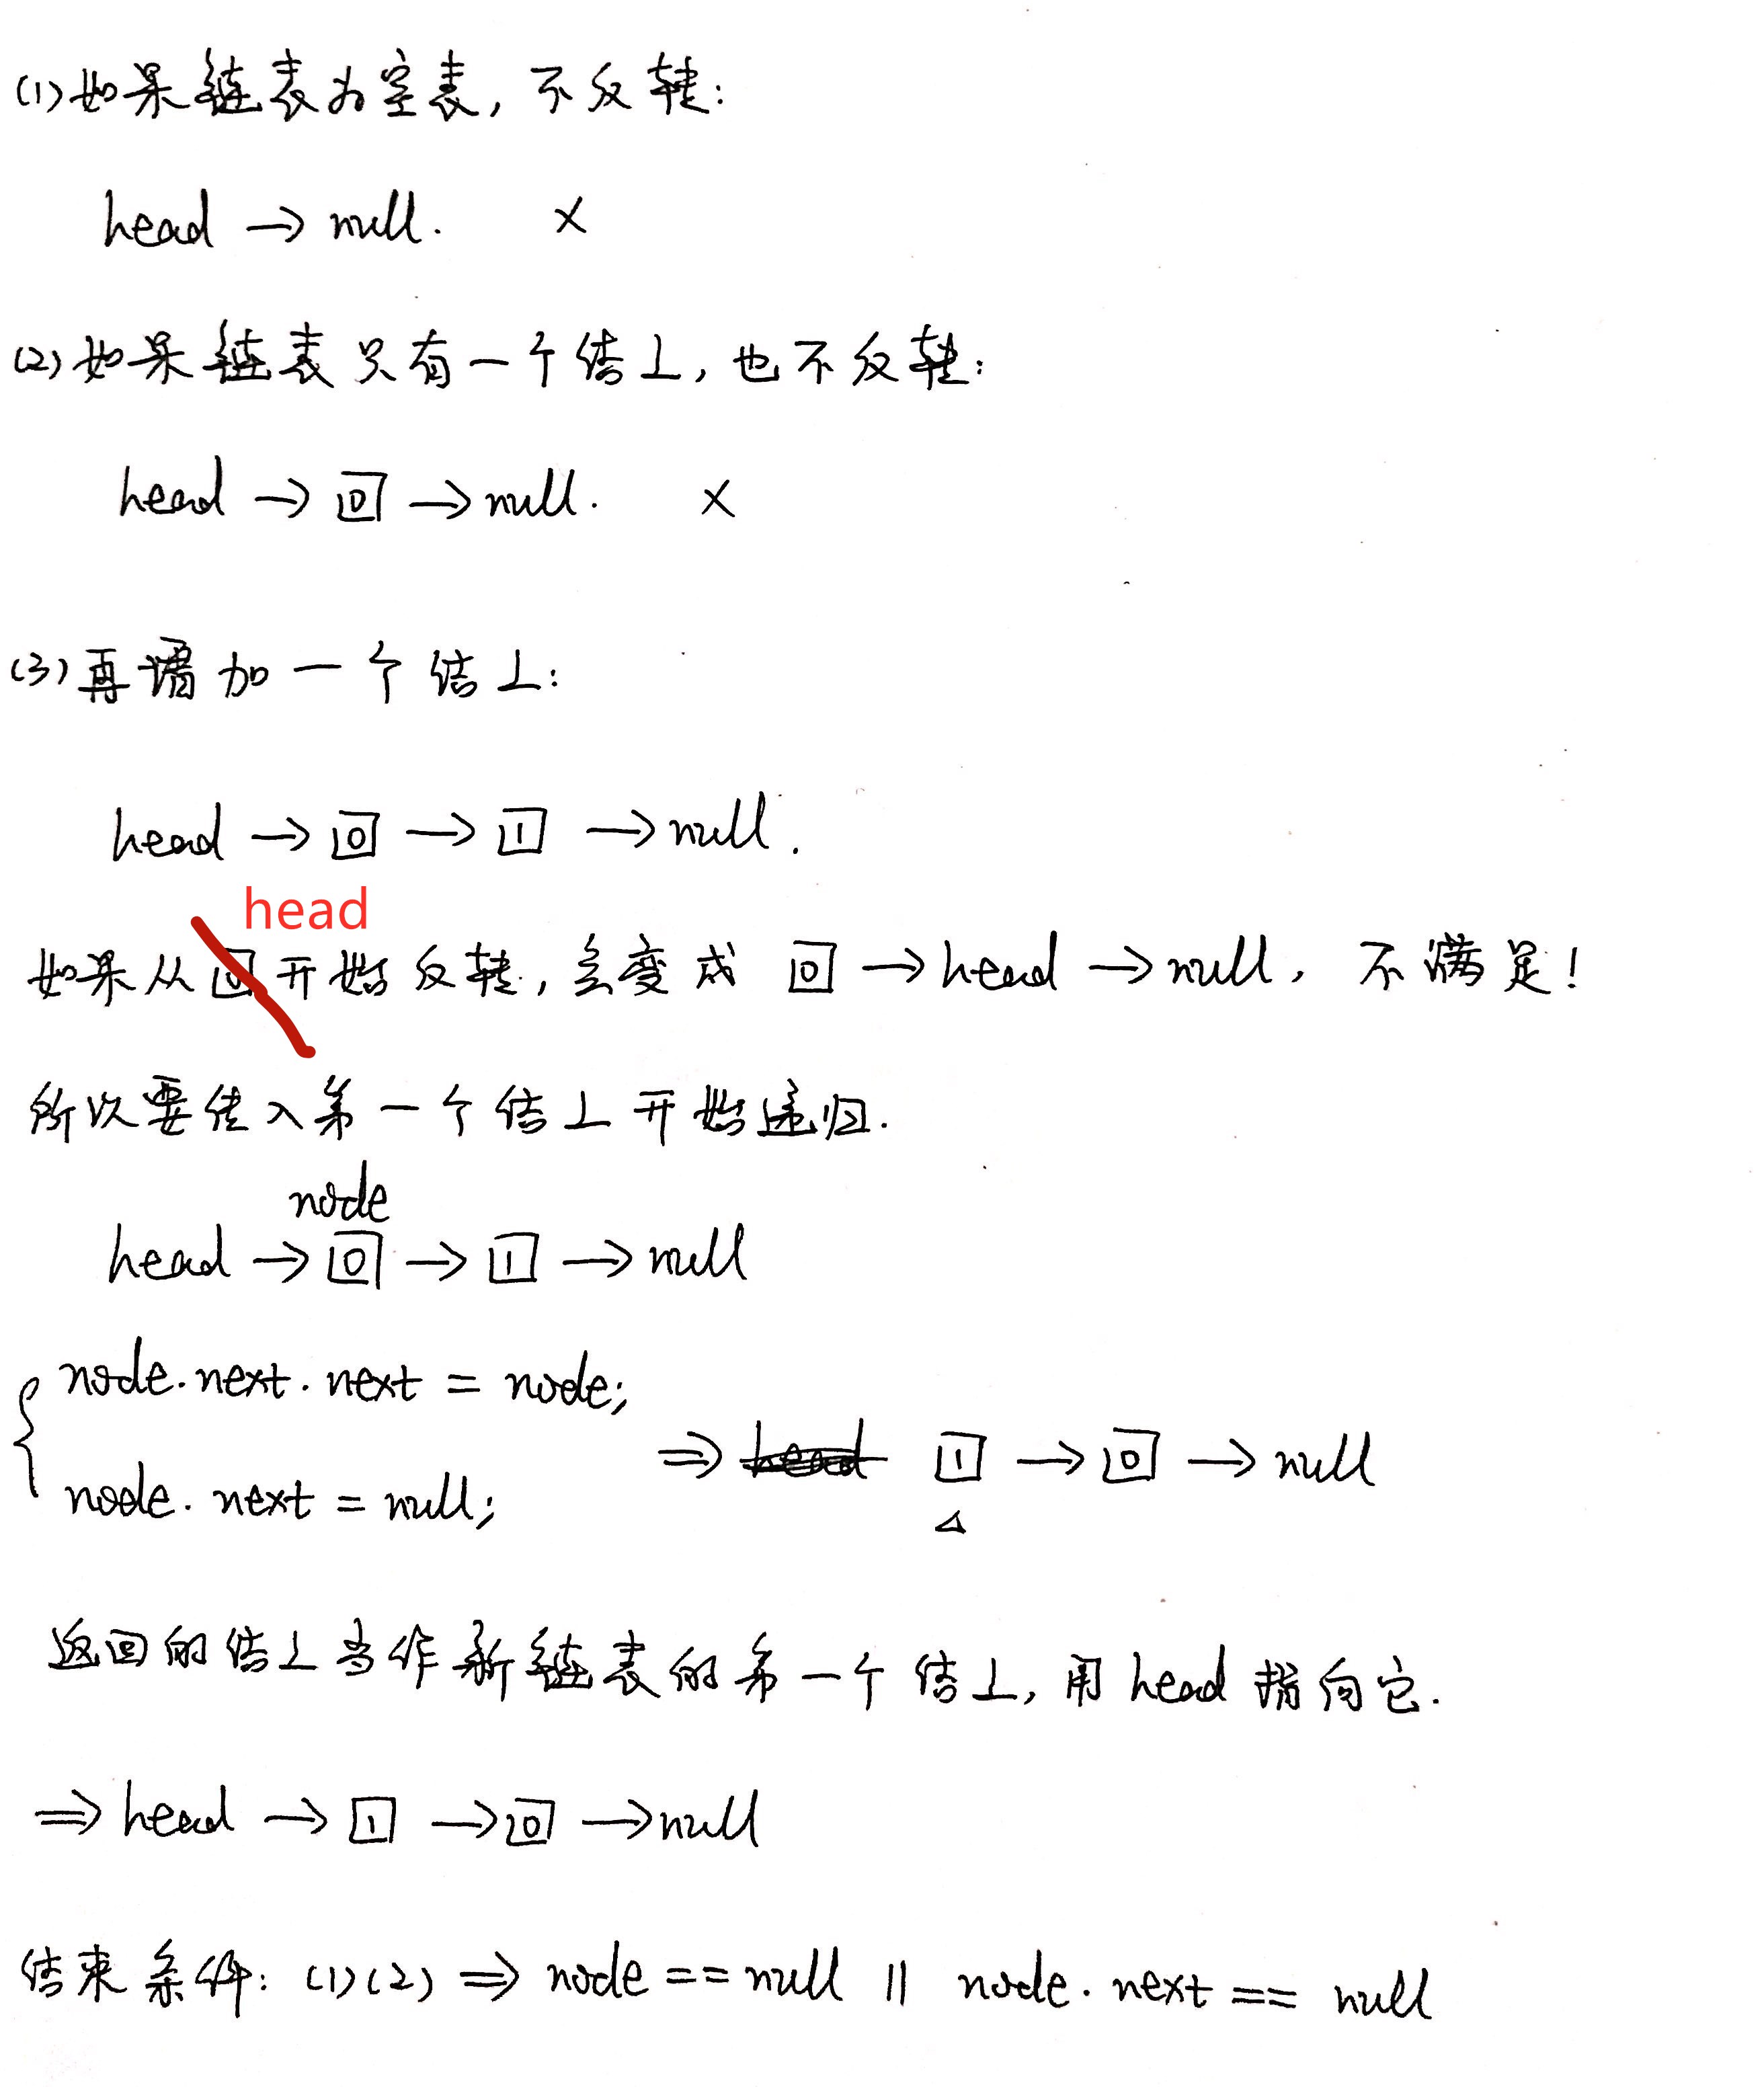 (1)如果链表为空表，不反转：
head → null. ×
(2)如果链表只有一个结上，也不反转：
head → 0 → null. ×
(3)再增加一个结上：
head → 0 → 1 → null.
head
如果从 0 开始反转，会变成 0 → head → null，不满足！
所以要传入第一个结上开始递归.
node
head → 0 → 1 → null
node.next.next = node;
⇒ head 1 → 0 → null
node.next = null;
返回的结上当作新链表的第一个结上，用 head 指向它.
⇒ head → 1 → 0 → null
结束条件：(1)(2) ⇒ node == null || node.next == null